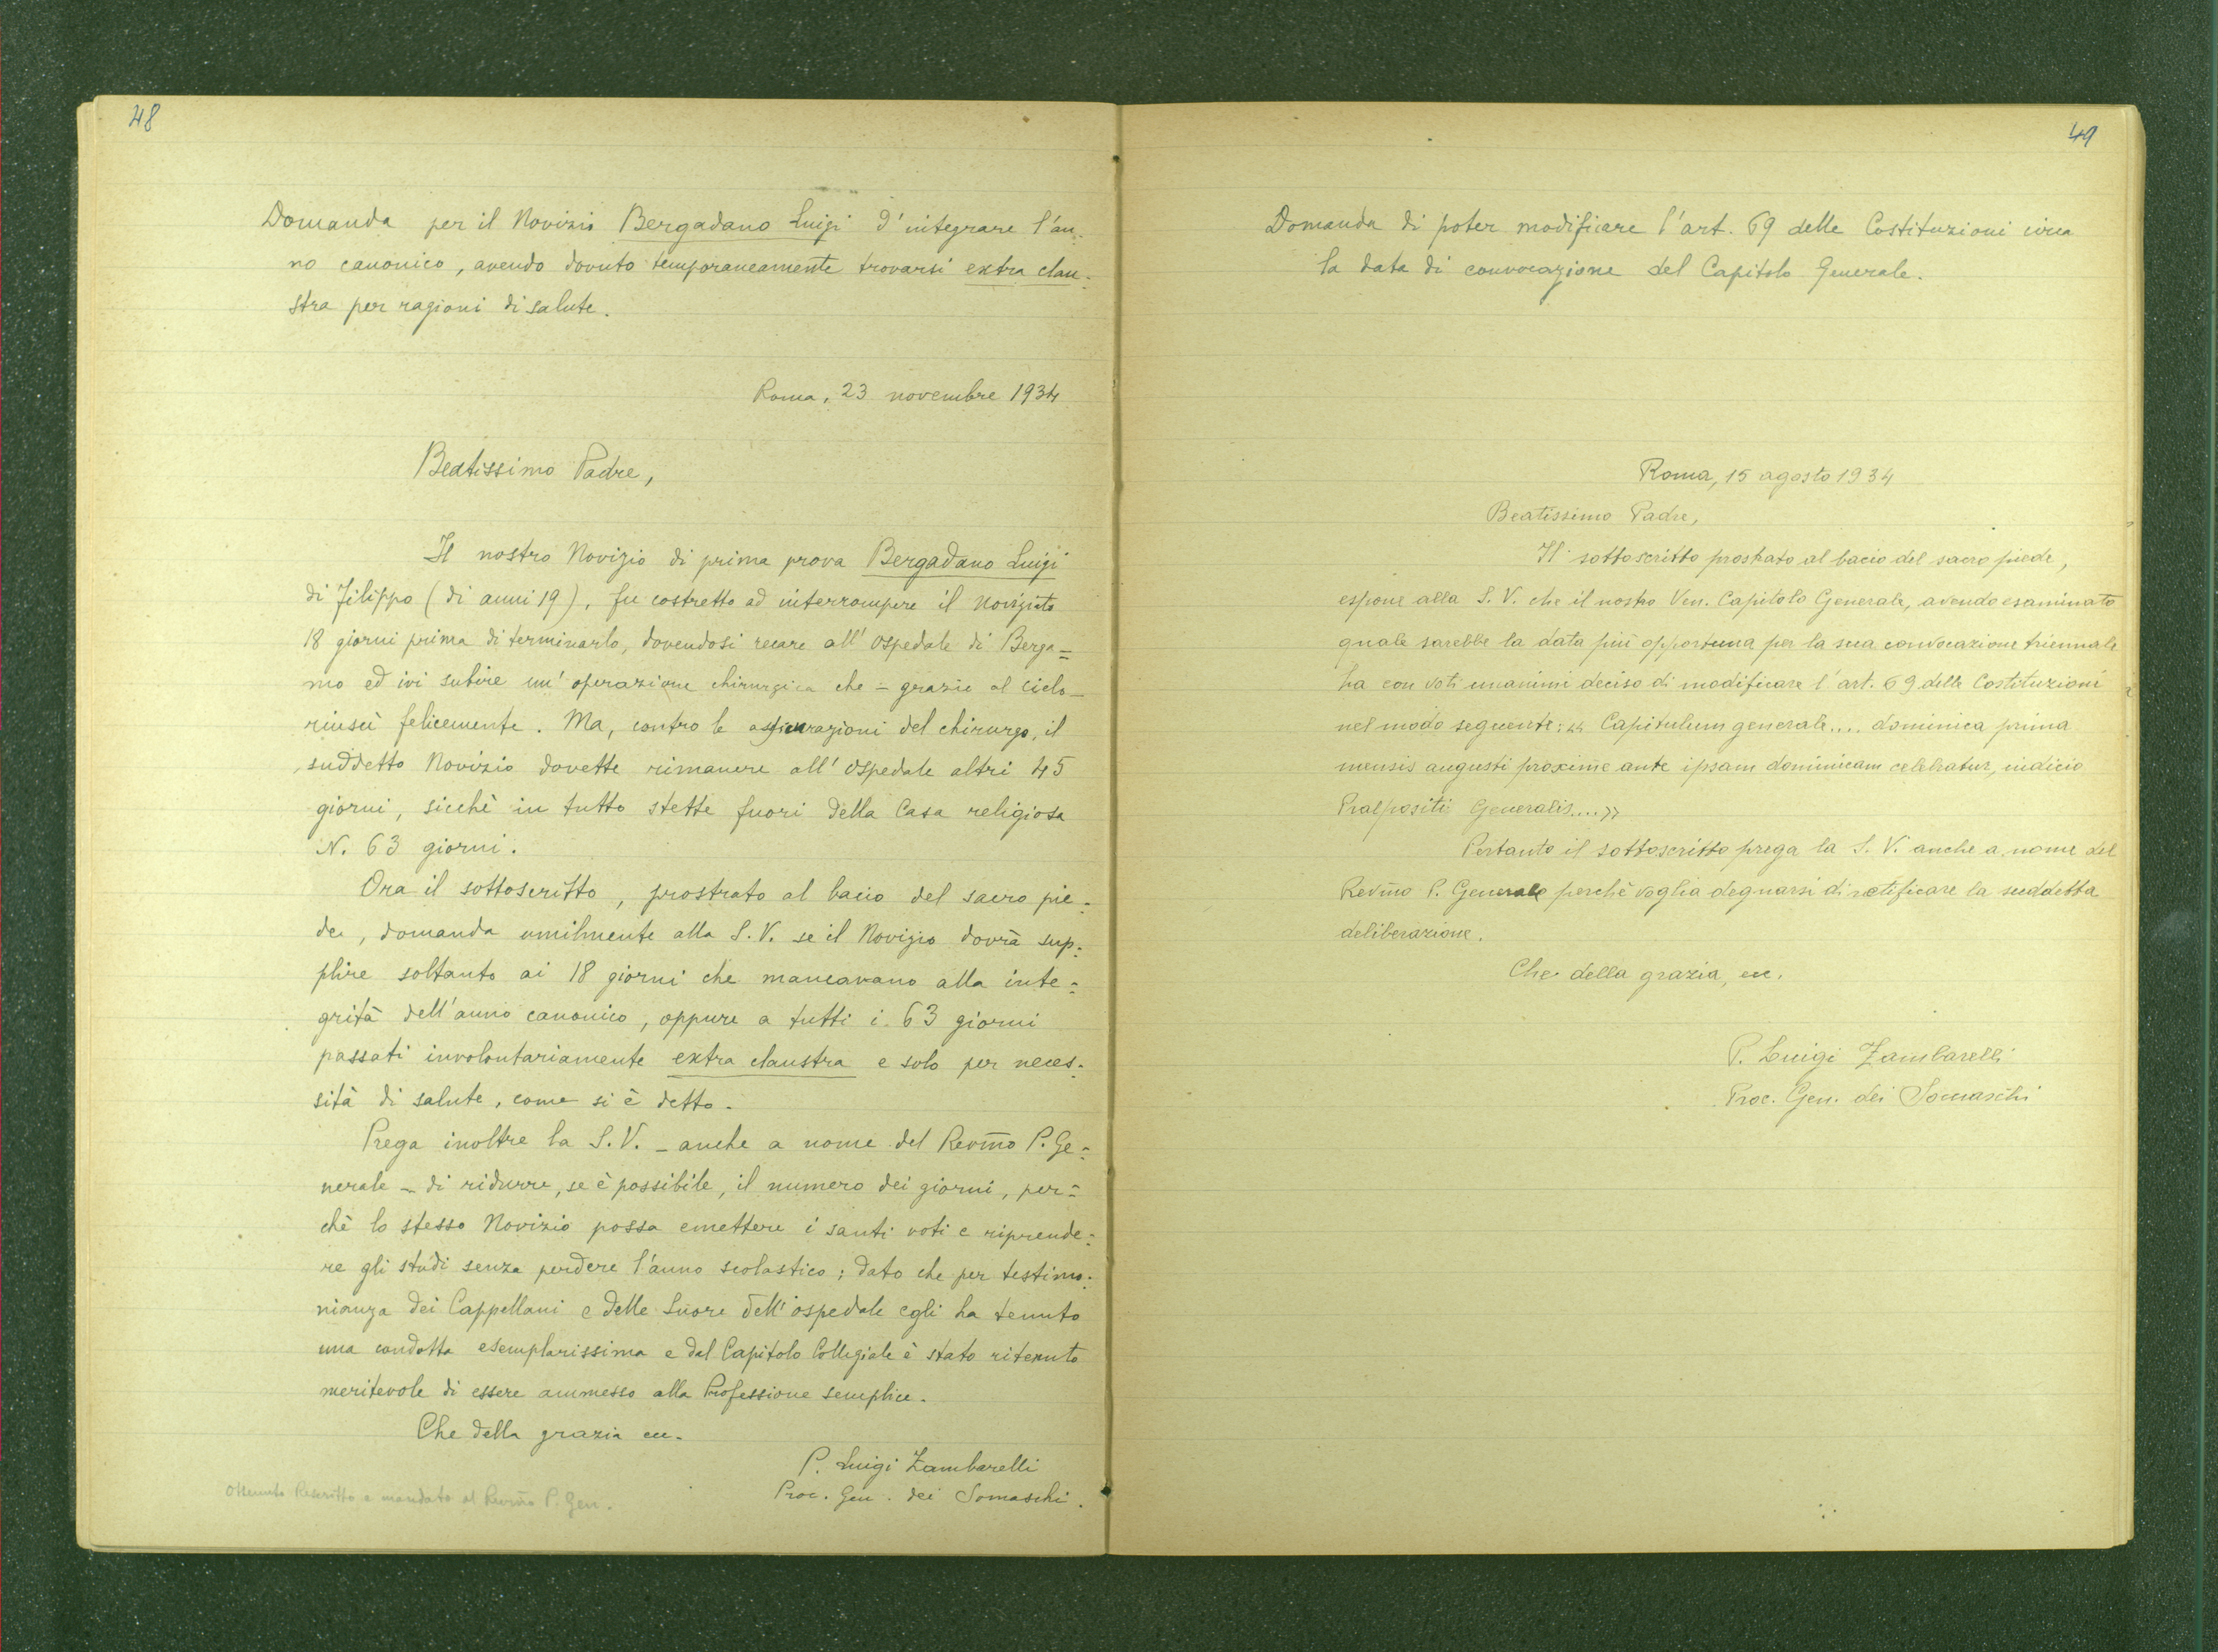 48
Domanda per il Novizio Bergadano Luigi d'integrare l'an-
no canonico, avendo dovuto temporaneamente trovarsi extra clau-
stra per ragioni di salute.
Roma, 23 novembre 1934
Beatissimo Padre,
Il nostro Novizio di prima prova Bergadano Luigi
di Filippo (di anni 19), fu costretto ad interrompere il noviziato
18 giorni prima di terminarlo, dovendosi recare all'ospedale di Berga=
mo ed ivi subire un'operazione chirurgica che - grazie al cielo -
riuscì felicemente. Ma, contro le assicurazioni del chirurgo, il
suddetto Novizio dovette rimanere all'ospedale altri 45
giorni, sicchè in tutto stette fuori della Casa religiosa
N. 63 giorni.
Ora il sottoscritto, prostrato al bacio del sacro pie=
de, domanda umilmente alla S.V. se il Novizio dovrà sup=
plire soltanto ai 18 giorni che mancavano alla inte=
grità dell'anno canonico, oppure a tutti i 63 giorni
passati involontariamente extra claustra e solo per neces=
sità di salute, come si è detto.
Prega inoltre la S.V. - anche a nome del Revm̄o P. Ge=
nerale - di ridurre, se è possibile, il numero dei giorni, per=
chè lo stesso Novizio possa emettere i santi voti e riprende=
re gli studi senza perdere l'anno scolastico; dato che per testimo=
nianza dei Cappellani e delle Suore dell'ospedale egli ha tenuto
una condotta esemplarissima e dal Capitolo Collegiale è stato ritenuto
meritevole di essere ammesso alla Professione semplice.
Che della grazia ecc.
P. Luigi Zambarelli
Proc. Gen. dei Somaschi.
Ottenuto Rescritto e mandato al Revm̄o P. Gen.
49
Domanda di poter modificare l'art. 69 delle Costituzioni circa
la data di convocazione del Capitolo Generale.
Roma, 15 agosto 1934
Beatissimo Padre,
Il sottoscritto prostrato al bacio del sacro piede,
espone alla S.V. che il nostro Ven. Capitolo Generale, avendo esaminato
quale sarebbe la data più opportuna per la sua convocazione triennale
ha con voti unanimi deciso di modificare l'art. 69 delle Costituzioni
nel modo seguente: « Capitulum generale.... dominica prima
mensis augusti proxime ante ipsam dominicam celebratur, indicio
Praepositi Generalis....»
Pertanto il sottoscritto prega la S.V. anche a nome del
Revm̄o P. Generale perchè voglia degnarsi di ratificare la suddetta
deliberazione.
Che della grazia, ecc.
P. Luigi Zambarelli
Proc. Gen. dei Somaschi